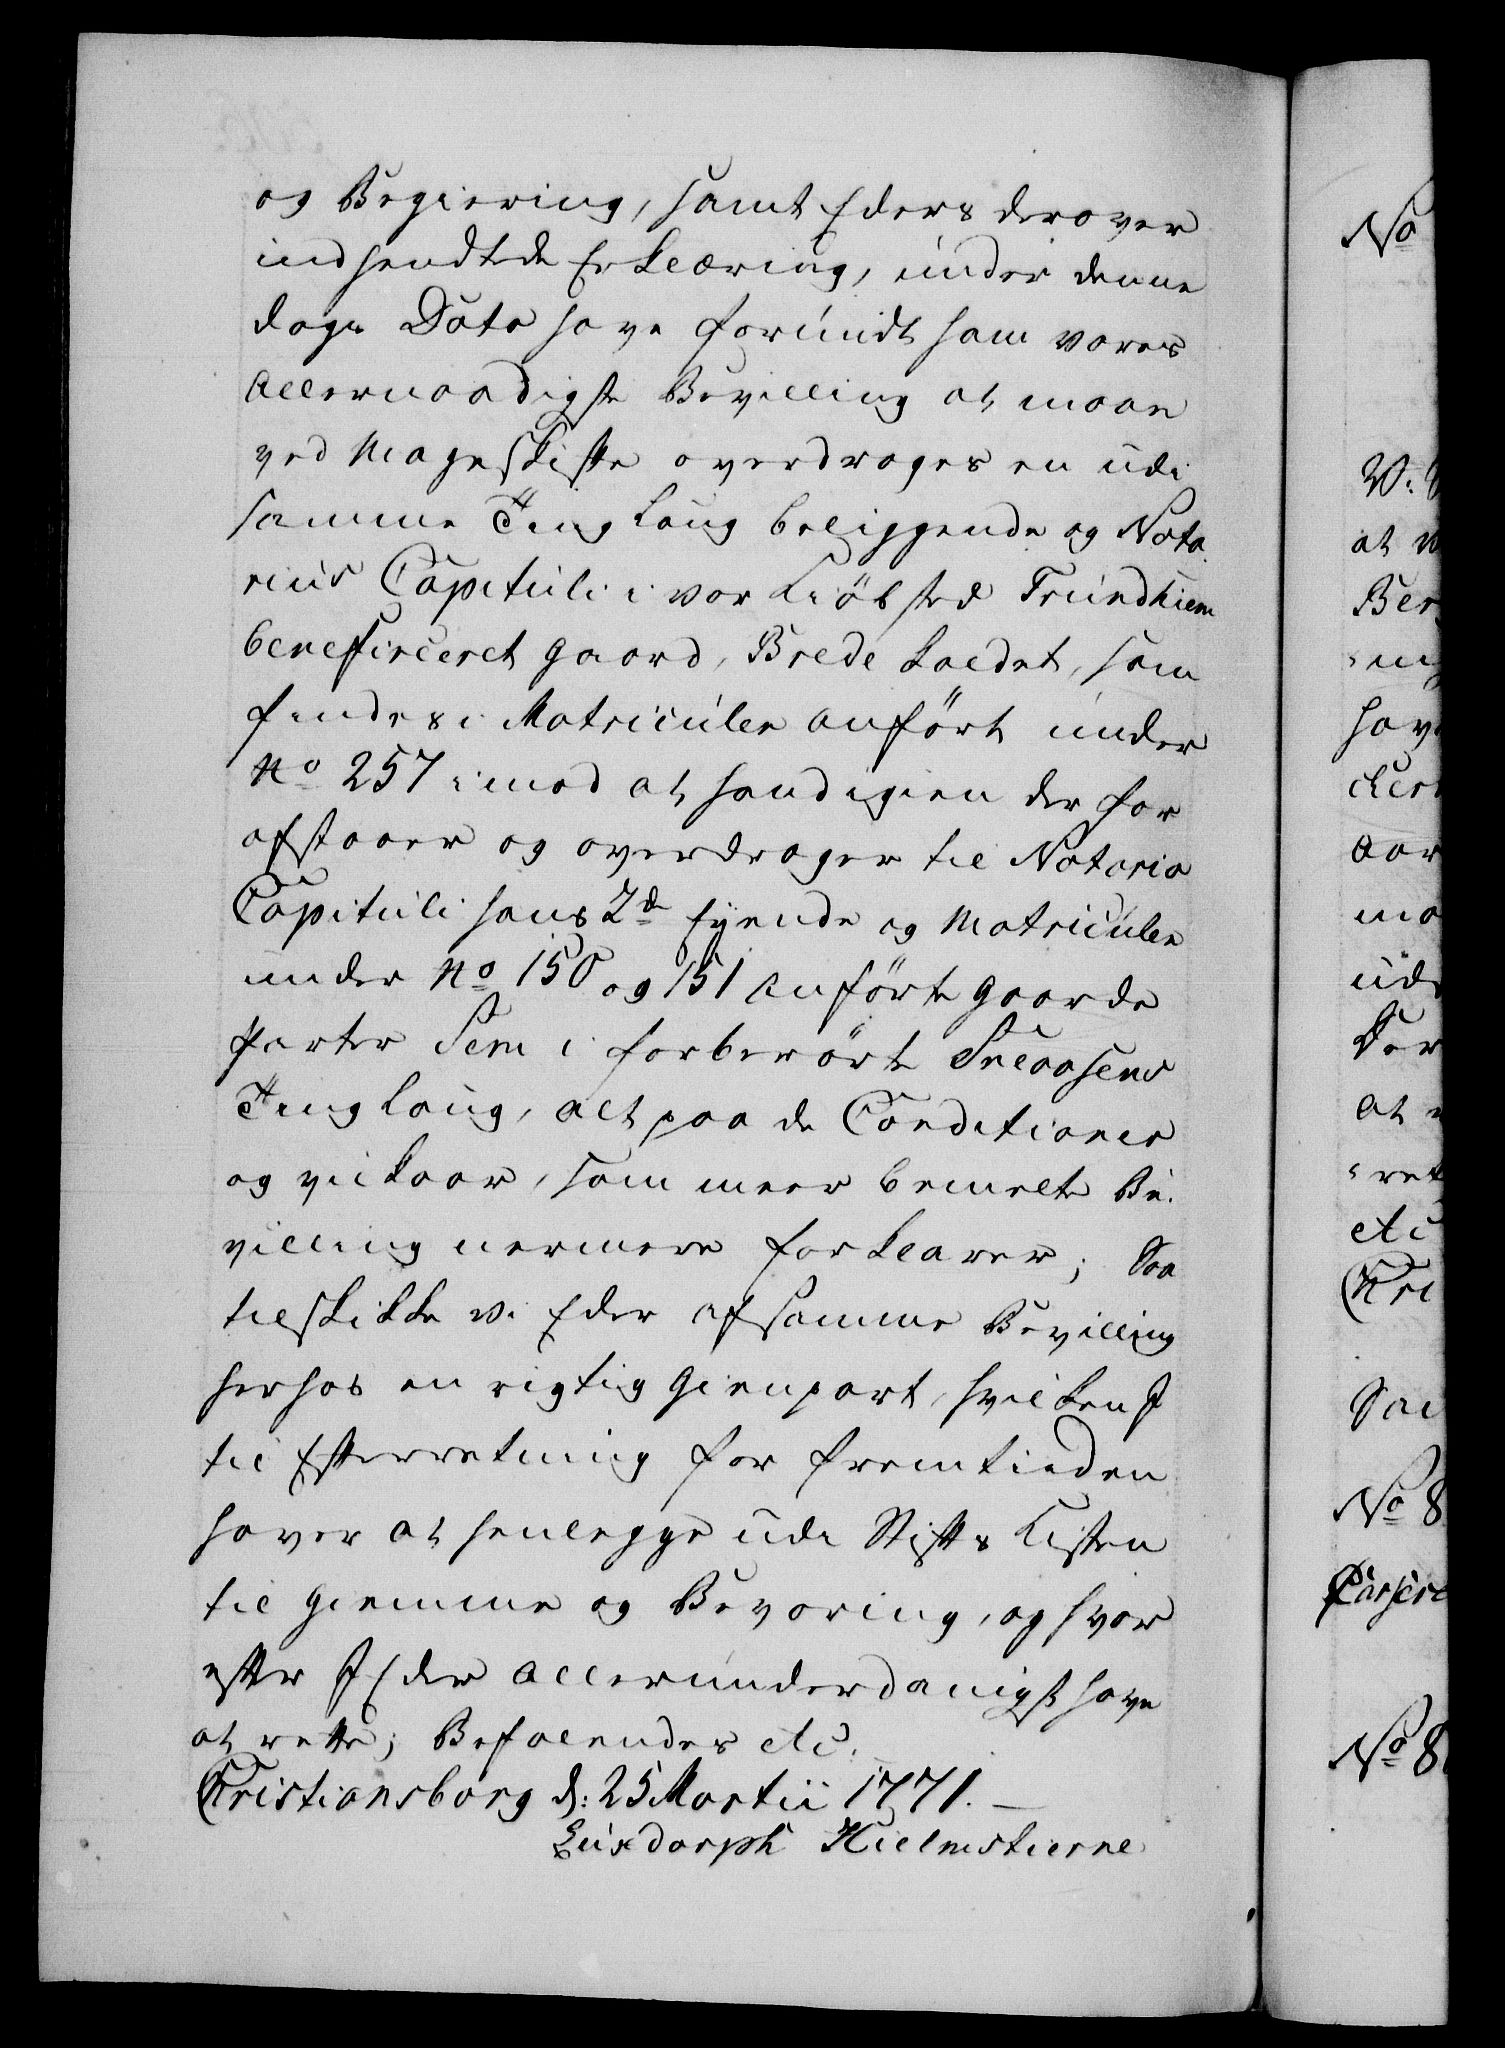 og Begiering, samt Eders derover
indsendtede Erklæring, under denne
dags Dato have forundt ham vores
allernaadigste Bevilling at maae
ved Mageskifte overdrages en udi
samme Tinglaug beliggende og Nota-
rius Capituli i vor Kiöbsted Trundhiem
beneficeret gaard, Brede kaldet, som
findes i Matriculen anfört under
No 257 imod at hand igien der for
afstaaer og overdrager til Notario
Capituli hans 2de Eyende og Matriculen
under No 150 og 151 anförte gaarde
Parter Sem i forberörte Sneaasens
Tinglaug, alt paa de Conditioner
og vilkaar, som meer bemelte Be-
villing nermere forklarer; Saa
tilskikke vi Eder af samme Bevilling
herhos en rigtig Gienpart, hvilken I
til Efterretning for fremtieden
haver at henlegge udi Stifts Kisten
til Giemme og Bevaring, og hvor
efter I Eder allerunderdanigst have
at rette; Befalendes etc.
Christiansborg d: 25 Martii 1771. —
Luxdorph Hielmstierne
No
V:
at
Ber
havе
aar
ma
ude
at
ret
etc
Chri
No 8
No 8